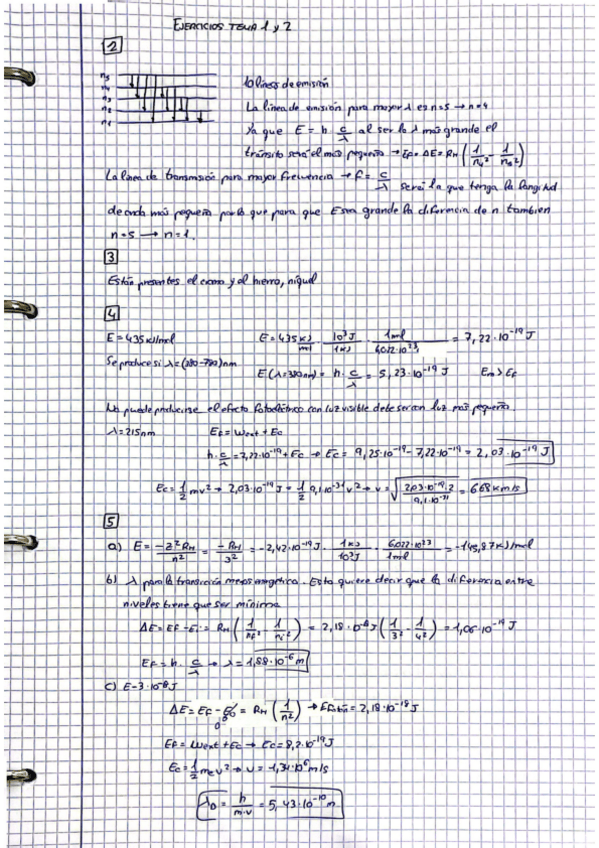 EJERCICIOS TEMA 1 y 2
2
n5
n4
n3
n2
n1
10 líneas de emisión
La línea de emisión para mayor λ es n=5 → n=4
Ya que E = h c/λ al ser la λ más grande el
tránsito será el más pequeño → Ef = ΔE = RH (1/n4² - 1/n5²)
La línea de transmisión para mayor frecuencia → f = c/λ será la que tenga la longitud
de onda más pequeña por lo que para que E sea grande la diferencia de n tambien
n=5 → n=1.
3
Están presentes el cromo y el hierro, níquel
4
E = 435 kJ/mol E = 435 kJ/ml · 10³J/1kJ · 1ml/6,022·10²³ = 7,22·10⁻¹⁹ J
Se produce si λ = (380-780)nm
E (λ=380nm) = h · c/λ = 5,23·10⁻¹⁹ J Em > Ef
No puede producirse el efecto fotoeléctrico con luz visible debe ser con luz más pequeña.
λ = 215nm Ef = Wext + Ec
h · c/λ = 7,22·10⁻¹⁹ + Ec → Ec = 9,25·10⁻¹⁹ - 7,22·10⁻¹⁹ = 2,03·10⁻¹⁹ J
Ec = 1/2 mv² → 2,03·10⁻¹⁹ J = 1/2 9,1·10⁻³¹ v² → v = √(2,03·10⁻¹⁹·2/9,1·10⁻³¹) = 668 km/s
5
a) E = -Z² RH/n² = -RH/3² = -2,42·10⁻¹⁹ J · 1kJ/10³J · 6,022·10²³/1ml = -145,87 kJ/mol
b) λ para la transición menos energética. Esto quiere decir que la diferencia entre
niveles tiene que ser mínima
ΔE = Ef - Ei = RH (1/nf² - 1/ni²) = 2,18·10⁻¹⁸ J (1/3² - 1/4²) = 1,06·10⁻¹⁹ J
Ef = h · c/λ → λ = 1,88·10⁻⁶ m
c) E-3·10⁻¹⁸ J
ΔE = Ef - E0 = RH (1/n²) → = 2,18·10⁻¹⁸ J
Ef = Wext + Ec → Ec = 8,2·10⁻¹⁹ J
Ec = 1/2 me v² → v = 1,34·10⁶ m/s
λD = h/m·v = 5,43·10⁻¹⁰ m